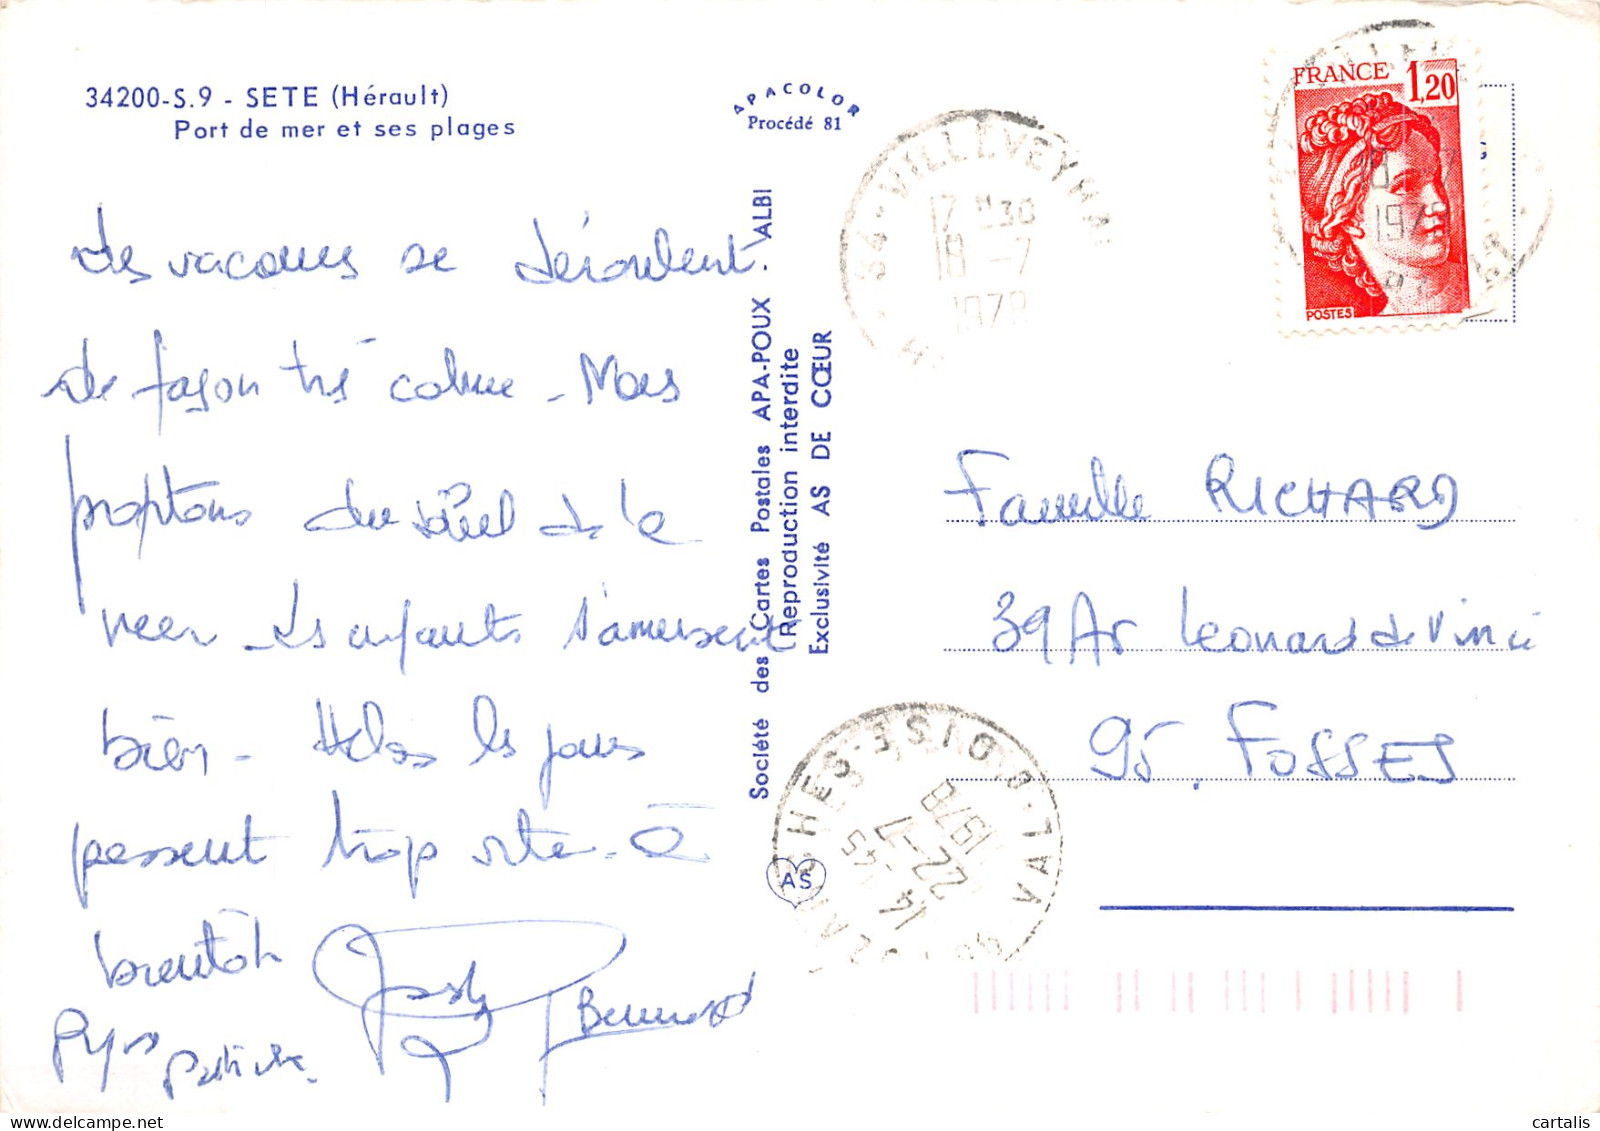 34200-S.9 - SETE (Hérault)
Port de mer et ses plages
APACOLOR
Procédé 81
Les vacances se déroulent
de façon très calme - Nous
profitons du soleil de la
mer - Les enfants s'amusent
bien - Hélas les jours
passent trop vite - à
bientôt
Patricia
Bernard
Société des Cartes Postales APA-POUX ALBI
Reproduction interdite
Exclusivité AS DE CŒUR
34 - VILLEVEYRA
17 H30
18 -7
1978
FRANCE 1,20
POSTES
18 -7
1978
Famille RICHARD
39 Av Leonard de Vinci
95. FOSSES
VAL-D'OISE
14 -45
22 -7
1978
AS
cartalis